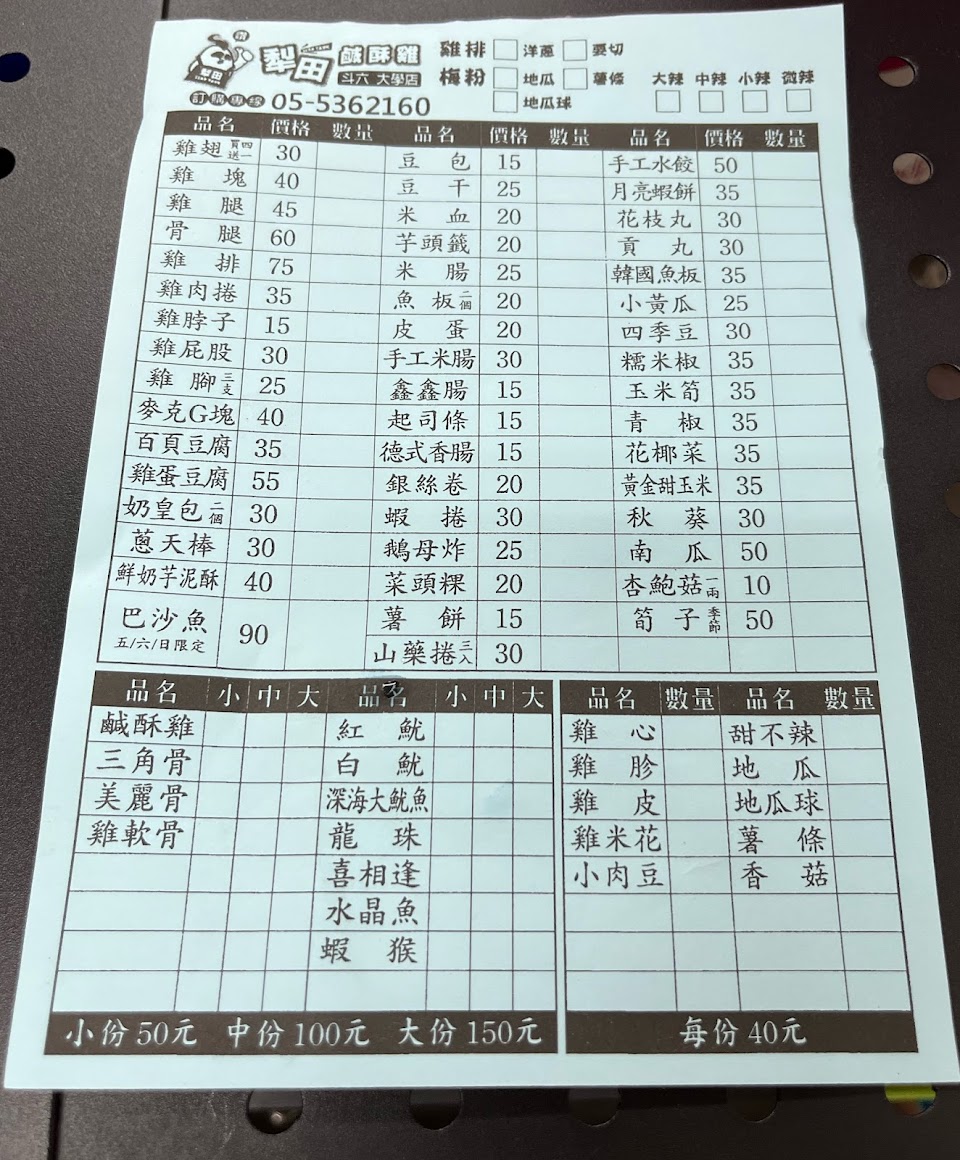 犁田 鹹酥雞
斗六 大學店
訂購專線 05-5362160
雞排 洋蔥 要切
梅粉 地瓜 薯條
地瓜球
大辣 中辣 小辣 微辣
品名 價格 數量 品名 價格 數量 品名 價格 數量
雞翅 買四送一 30 豆包 15 手工水餃 50
雞塊 40 豆干 25 月亮蝦餅 35
雞腿 45 米血 20 花枝丸 30
骨腿 60 芋頭籤 20 貢丸 30
雞排 75 米腸 25 韓國魚板 35
雞肉捲 35 魚板 二個 20 小黃瓜 25
雞脖子 15 皮蛋 20 四季豆 30
雞屁股 30 手工米腸 30 糯米椒 35
雞腳 三支 25 鑫鑫腸 15 玉米筍 35
麥克G塊 40 起司條 15 青椒 35
百頁豆腐 35 德式香腸 15 花椰菜 35
雞蛋豆腐 55 銀絲卷 20 黃金甜玉米 35
奶皇包 二個 30 蝦捲 30 秋葵 30
蔥天棒 30 鵝母炸 25 南瓜 50
鮮奶芋泥酥 40 菜頭粿 20 杏鮑菇 一兩 10
巴沙魚 五/六/日限定 90 薯餅 15 筍子 季節 50
山藥捲 三入 30
品名 小 中 大 品名 小 中 大
鹹酥雞 紅魷
三角骨 白魷
美麗骨 深海大魷魚
雞軟骨 龍珠
喜相逢
水晶魚
蝦猴
小份50元 中份100元 大份150元
品名 數量 品名 數量
雞心 甜不辣
雞胗 地瓜
雞皮 地瓜球
雞米花 薯條
小肉豆 香菇
每份40元